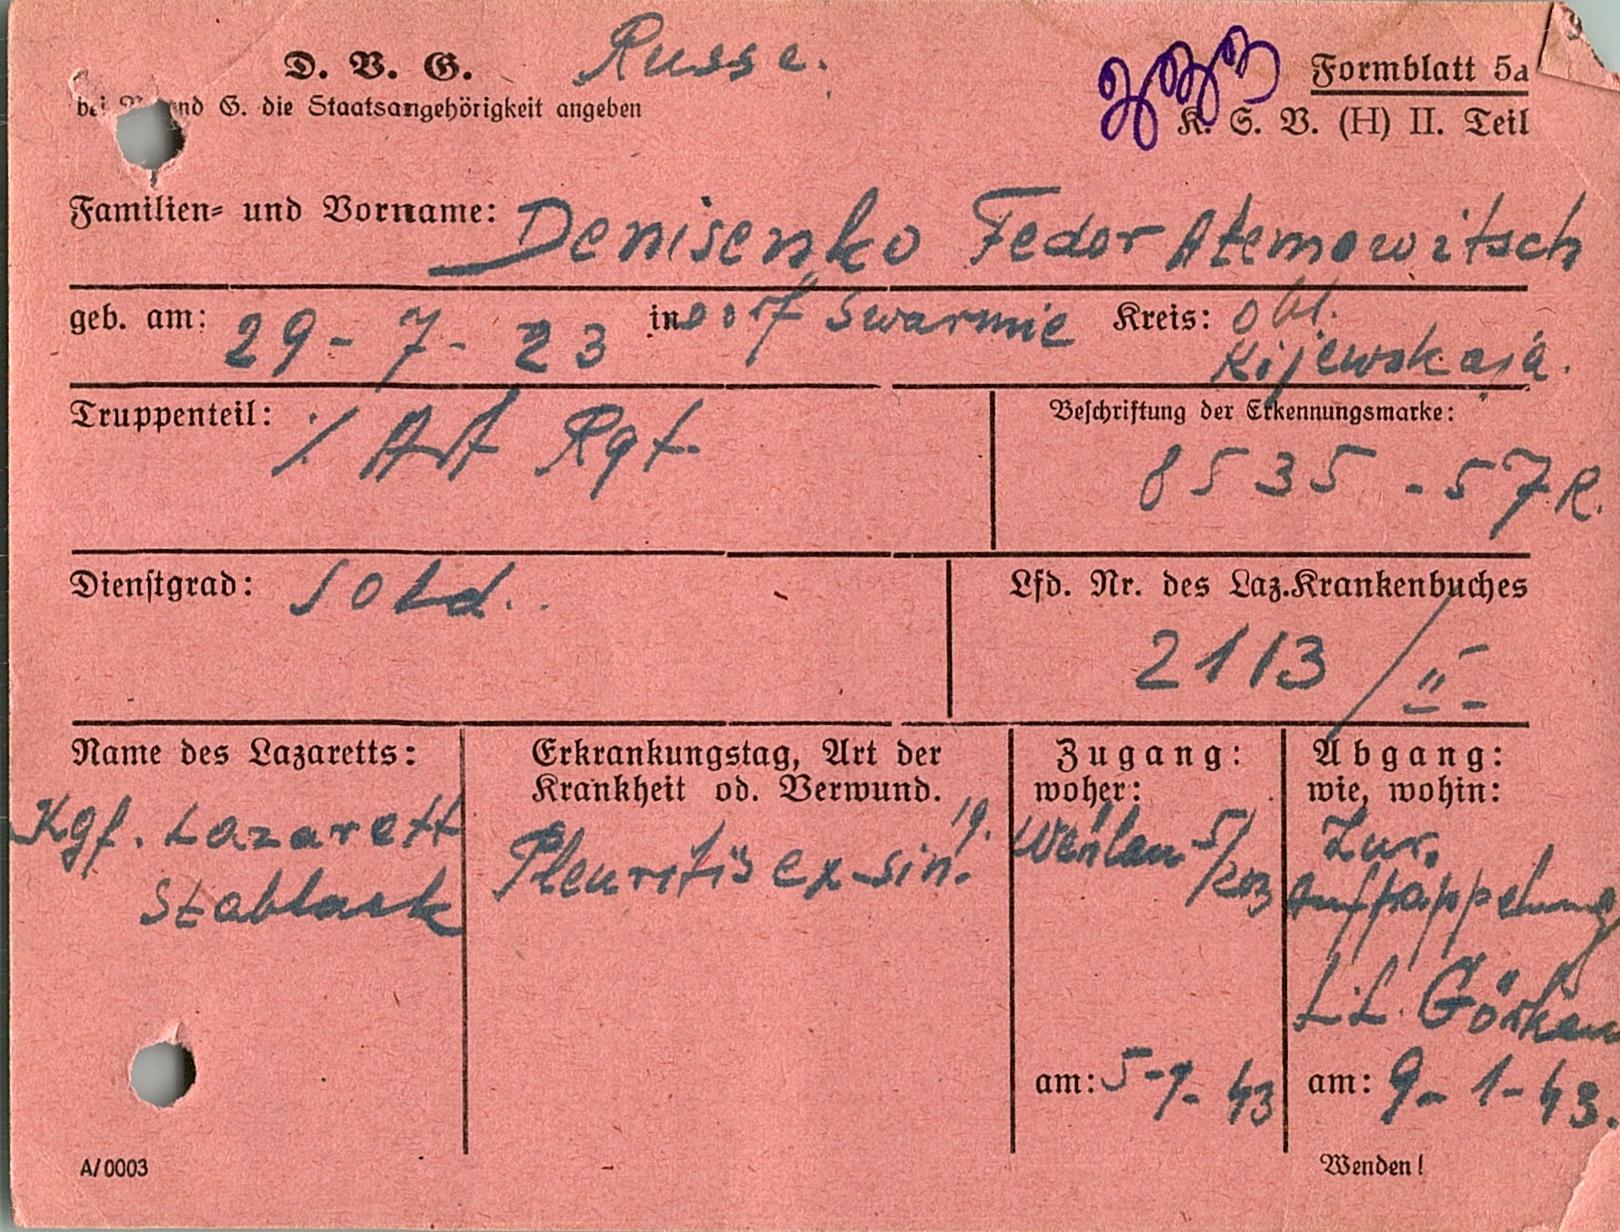 D. V. G. Russe.
bei V. und G. die Staatsangehörigkeit angeben
Formblatt 5a
K. S. V. (H) II. Teil
Familien- und Vorname: Denisenko Fedor Atemowitsch
geb. am: 29-7-23 in Dorf Swarmie Kreis: Obl.
Kijewskaja.
Truppenteil: ./ Art Rgt.
Beschriftung der Erkennungsmarke:
8535-57 R.
Dienstgrad: Sold.
Lfd. Nr. des Laz.Krankenbuches
2113 / II
Name des Lazaretts:
Kgf. Lazarett
Stablack
Erkrankungstag, Art der
Krankheit od. Verwund.
19.
Pleuritis ex-sin.
Zugang:
woher:
am: 5-7-43
Abgang:
wie, wohin:
Zur.
Aufpäppelung
Görken
am: 9-1-43.
A/0003
Wenden!